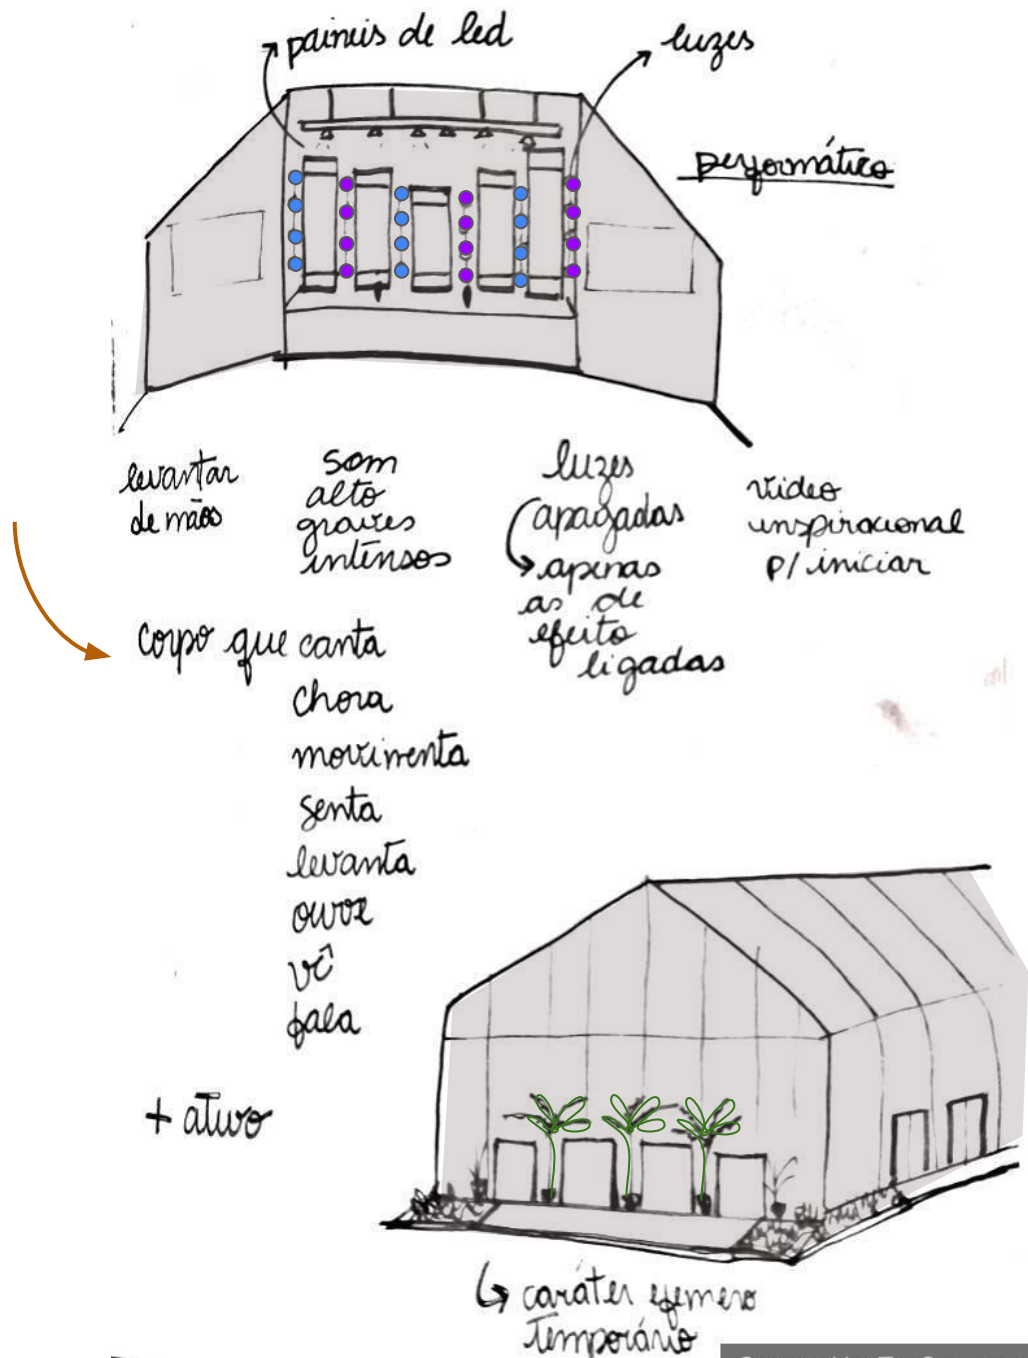 paineis de led
luzes
performático
levantar
de mãos
som
alto
graves
intensos
luzes
apagadas
apenas
as de
efeito
ligadas
video
inspiracional
p/ iniciar
corpo que canta
chora
movimenta
senta
levanta
ouve
vê
fala
+ ativo
caráter efemero
temporário